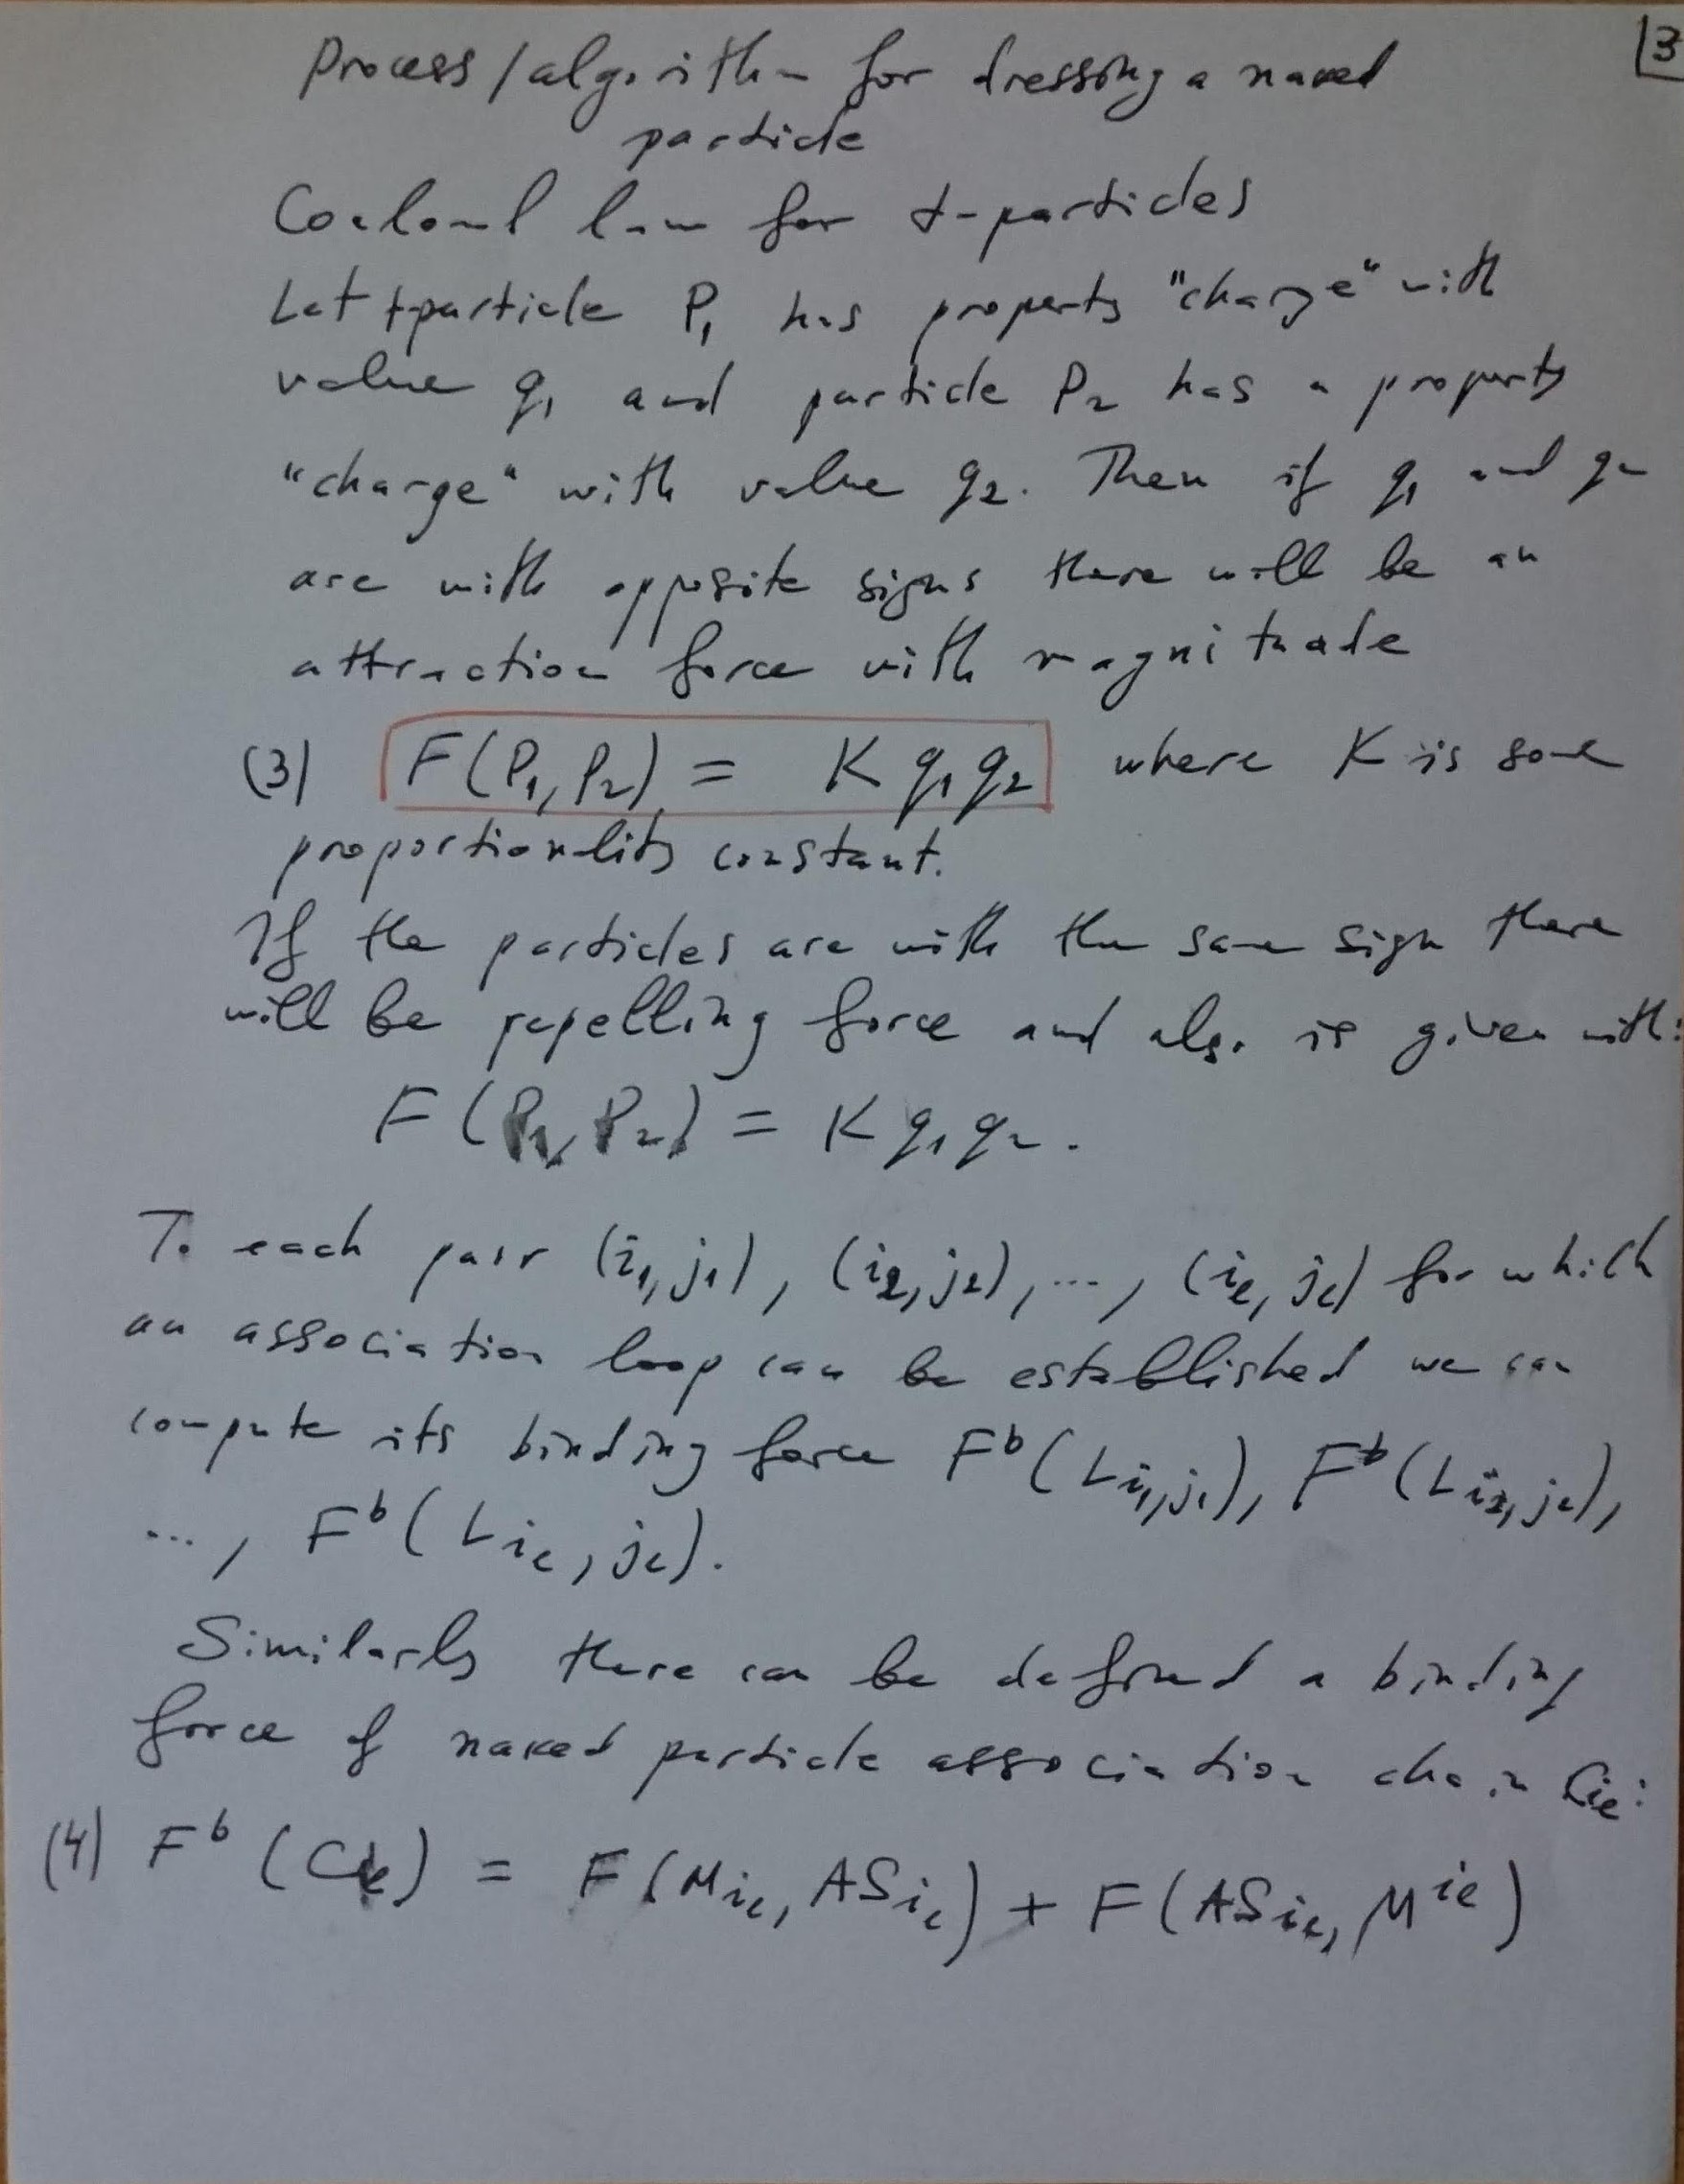 3
Process/algorithm for dressing a naked
particle
Coulomb law for t-particles
Let t-particle P₁ has property "charge" with
value q₁ and particle P₂ has a property
"charge" with value q₂. Then if q₁ and q₂
are with opposite signs there will be an
attraction force with magnitude
(3) F(P₁, P₂) = K q₁q₂ where K is some
proportionality constant.
If the particles are with the same sign there
will be repelling force and also is given with:
F(P₁, P₂) = K q₁q₂.
To each pair (i₁, j₁), (i₂, j₂), ..., (iₑ, jₑ) for which
an association loop can be established we can
compute its binding force Fᵇ(L i₁,j₁), Fᵇ(L i₂,j₂),
..., Fᵇ(L iₑ, jₑ).
Similarly there can be defined a binding
force of naked particle association chain C iₑ:
(4) Fᵇ(C) = F(M iₑ, AS iₑ) + F(AS iₑ, M^ie)